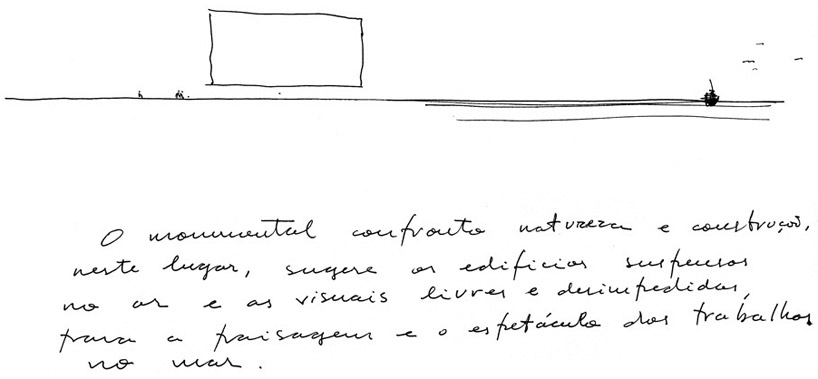 O monumental confronto natureza e construção,
neste lugar, sugere os edifícios suspensos
no ar e as visuais livres e desimpedidas,
para a paisagem e o espetáculo dos trabalhos
no mar.